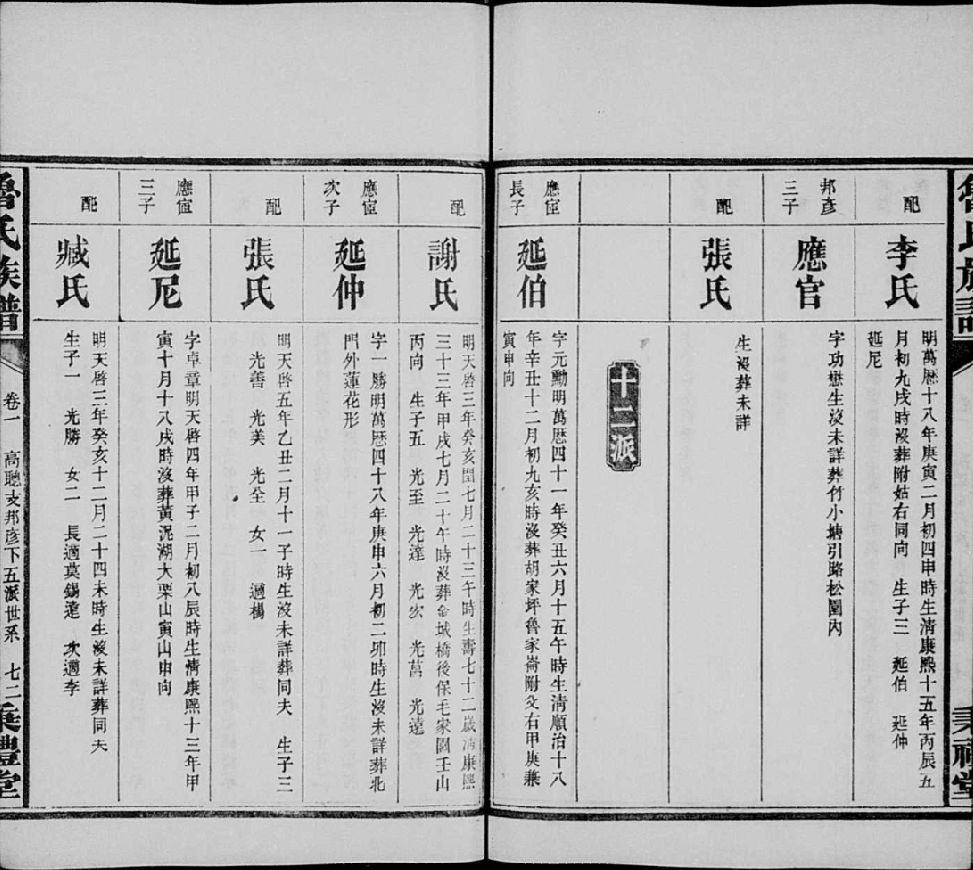 配
李氏
明萬厯十八年庚寅二月初四申時生清康熙十五年丙辰五
月初九戌時沒葬附姑右同向 生子三 延伯 延仲
延尼
邦彦
三子
應官
字功懋生沒未詳葬竹小塘引路松園內
配
張氏
生沒葬未詳
十二派
應宦
長子
延伯
字元勳明萬厯四十一年癸丑六月十五午時生淸順治十八
年辛丑十二月初九亥時沒葬胡家坪魯家崙附父右甲庚兼
寅申向
配
謝氏
明天啓三年癸亥閏七月二十三午時生壽七十二歲淸康熙
三十三年甲戌七月二十午時沒葬金城橋後保毛家園壬山
丙向 生子五 光至 光達 光宏 光萬 光遠
應宦
次子
延仲
字一勝明萬厯四十八年庚申六月初二卯時生沒未詳葬北
門外蓮花形
配
張氏
明天啓五年乙丑二月十一子時生沒未詳葬同夫 生子三
光善 光美 光全 女一 適楊
應宦
三子
延尼
字卓章明天啓四年甲子二月初八辰時生淸康熙十三年甲
寅十月十八戌時沒葬黃泥湖大栗山寅山申向
配
臧氏
明天啓三年癸亥十二月二十四未時生沒未詳葬同夫
生子一 光勝 女二 長適莫錫逵 次適李
魯氏族譜
卷一 高聰支邦彦下五派世系 七二
秉禮堂